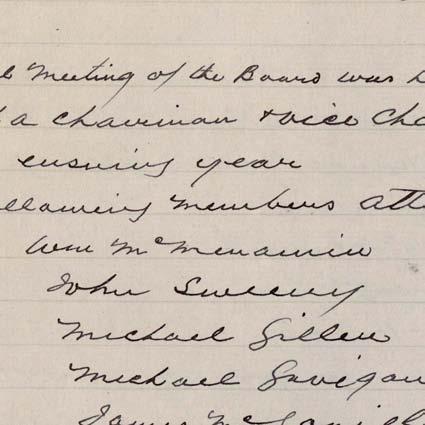 Meeting of the Board was
a chairman + vice Cha
ensuing year
llowing Members atte
Wm McMenamin
John Sweeny
Michael Gillen
Michael Gavigan
James Mc